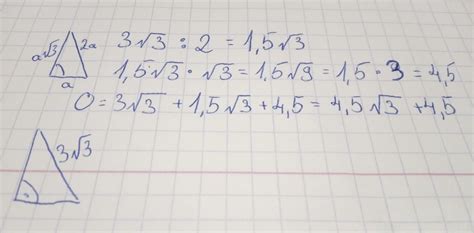 a√3 2a 3√3 : 2 = 1,5√3
a 1,5√3 · √3 = 1,5√9 = 1,5 · 3 = 4,5
O = 3√3 + 1,5√3 + 4,5 = 4,5√3 + 4,5
3√3